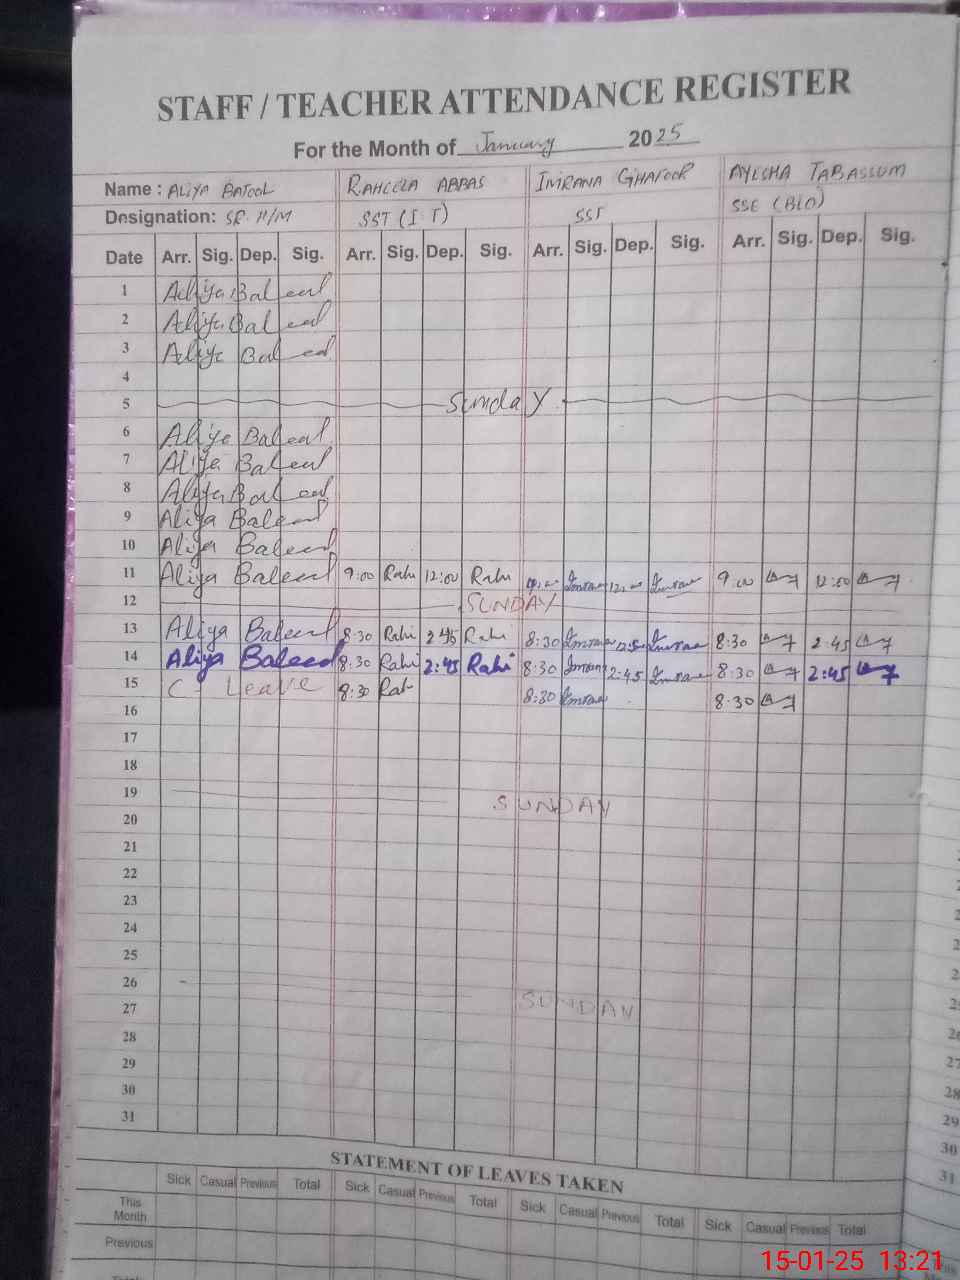 STAFF / TEACHER ATTENDANCE REGISTER
For the Month of January 2025
Name : ALIYA BATOOL RAHEELA ABBAS IMRANA GHAFOOR AYESHA TABASSUM
Designation: SR. H/M SST (I T) SST SSE (BIO)
Date Arr. Sig. Dep. Sig. Arr. Sig. Dep. Sig. Arr. Sig. Dep. Sig. Arr. Sig. Dep. Sig.
1 Aliya Batool
2 Aliya Batool
3 Aliya Batool
4
5 Sunday
6 Aliya Batool
7 Aliya Batool
8 Aliya Batool
9 Aliya Batool
10 Aliya Batool
11 Aliya Batool 9:00 Rahi 12:00 Rahi Imrana Imrana 9:00 12:00
12 SUNDAY
13 Aliya Batool 8:30 Rahi 2:45 Rahi 8:30 Imrana Imrana 8:30 2:45
14 Aliya Batool 8:30 Rahi 2:45 Rahi 8:30 Imrana 2:45 Imrana 8:30 2:45
15 C Leave 8:30 Rahi 8:30 Imrana 8:30
16
17
18
19 SUNDAY
20
21
22
23
24
25
26 SUNDAY
27
28
29
30
31
STATEMENT OF LEAVES TAKEN
Sick Casual Previous Total Sick Casual Previous Total Sick Casual Previous Total Sick Casual Previous Total
This Month
Previous
15-01-25 13:21